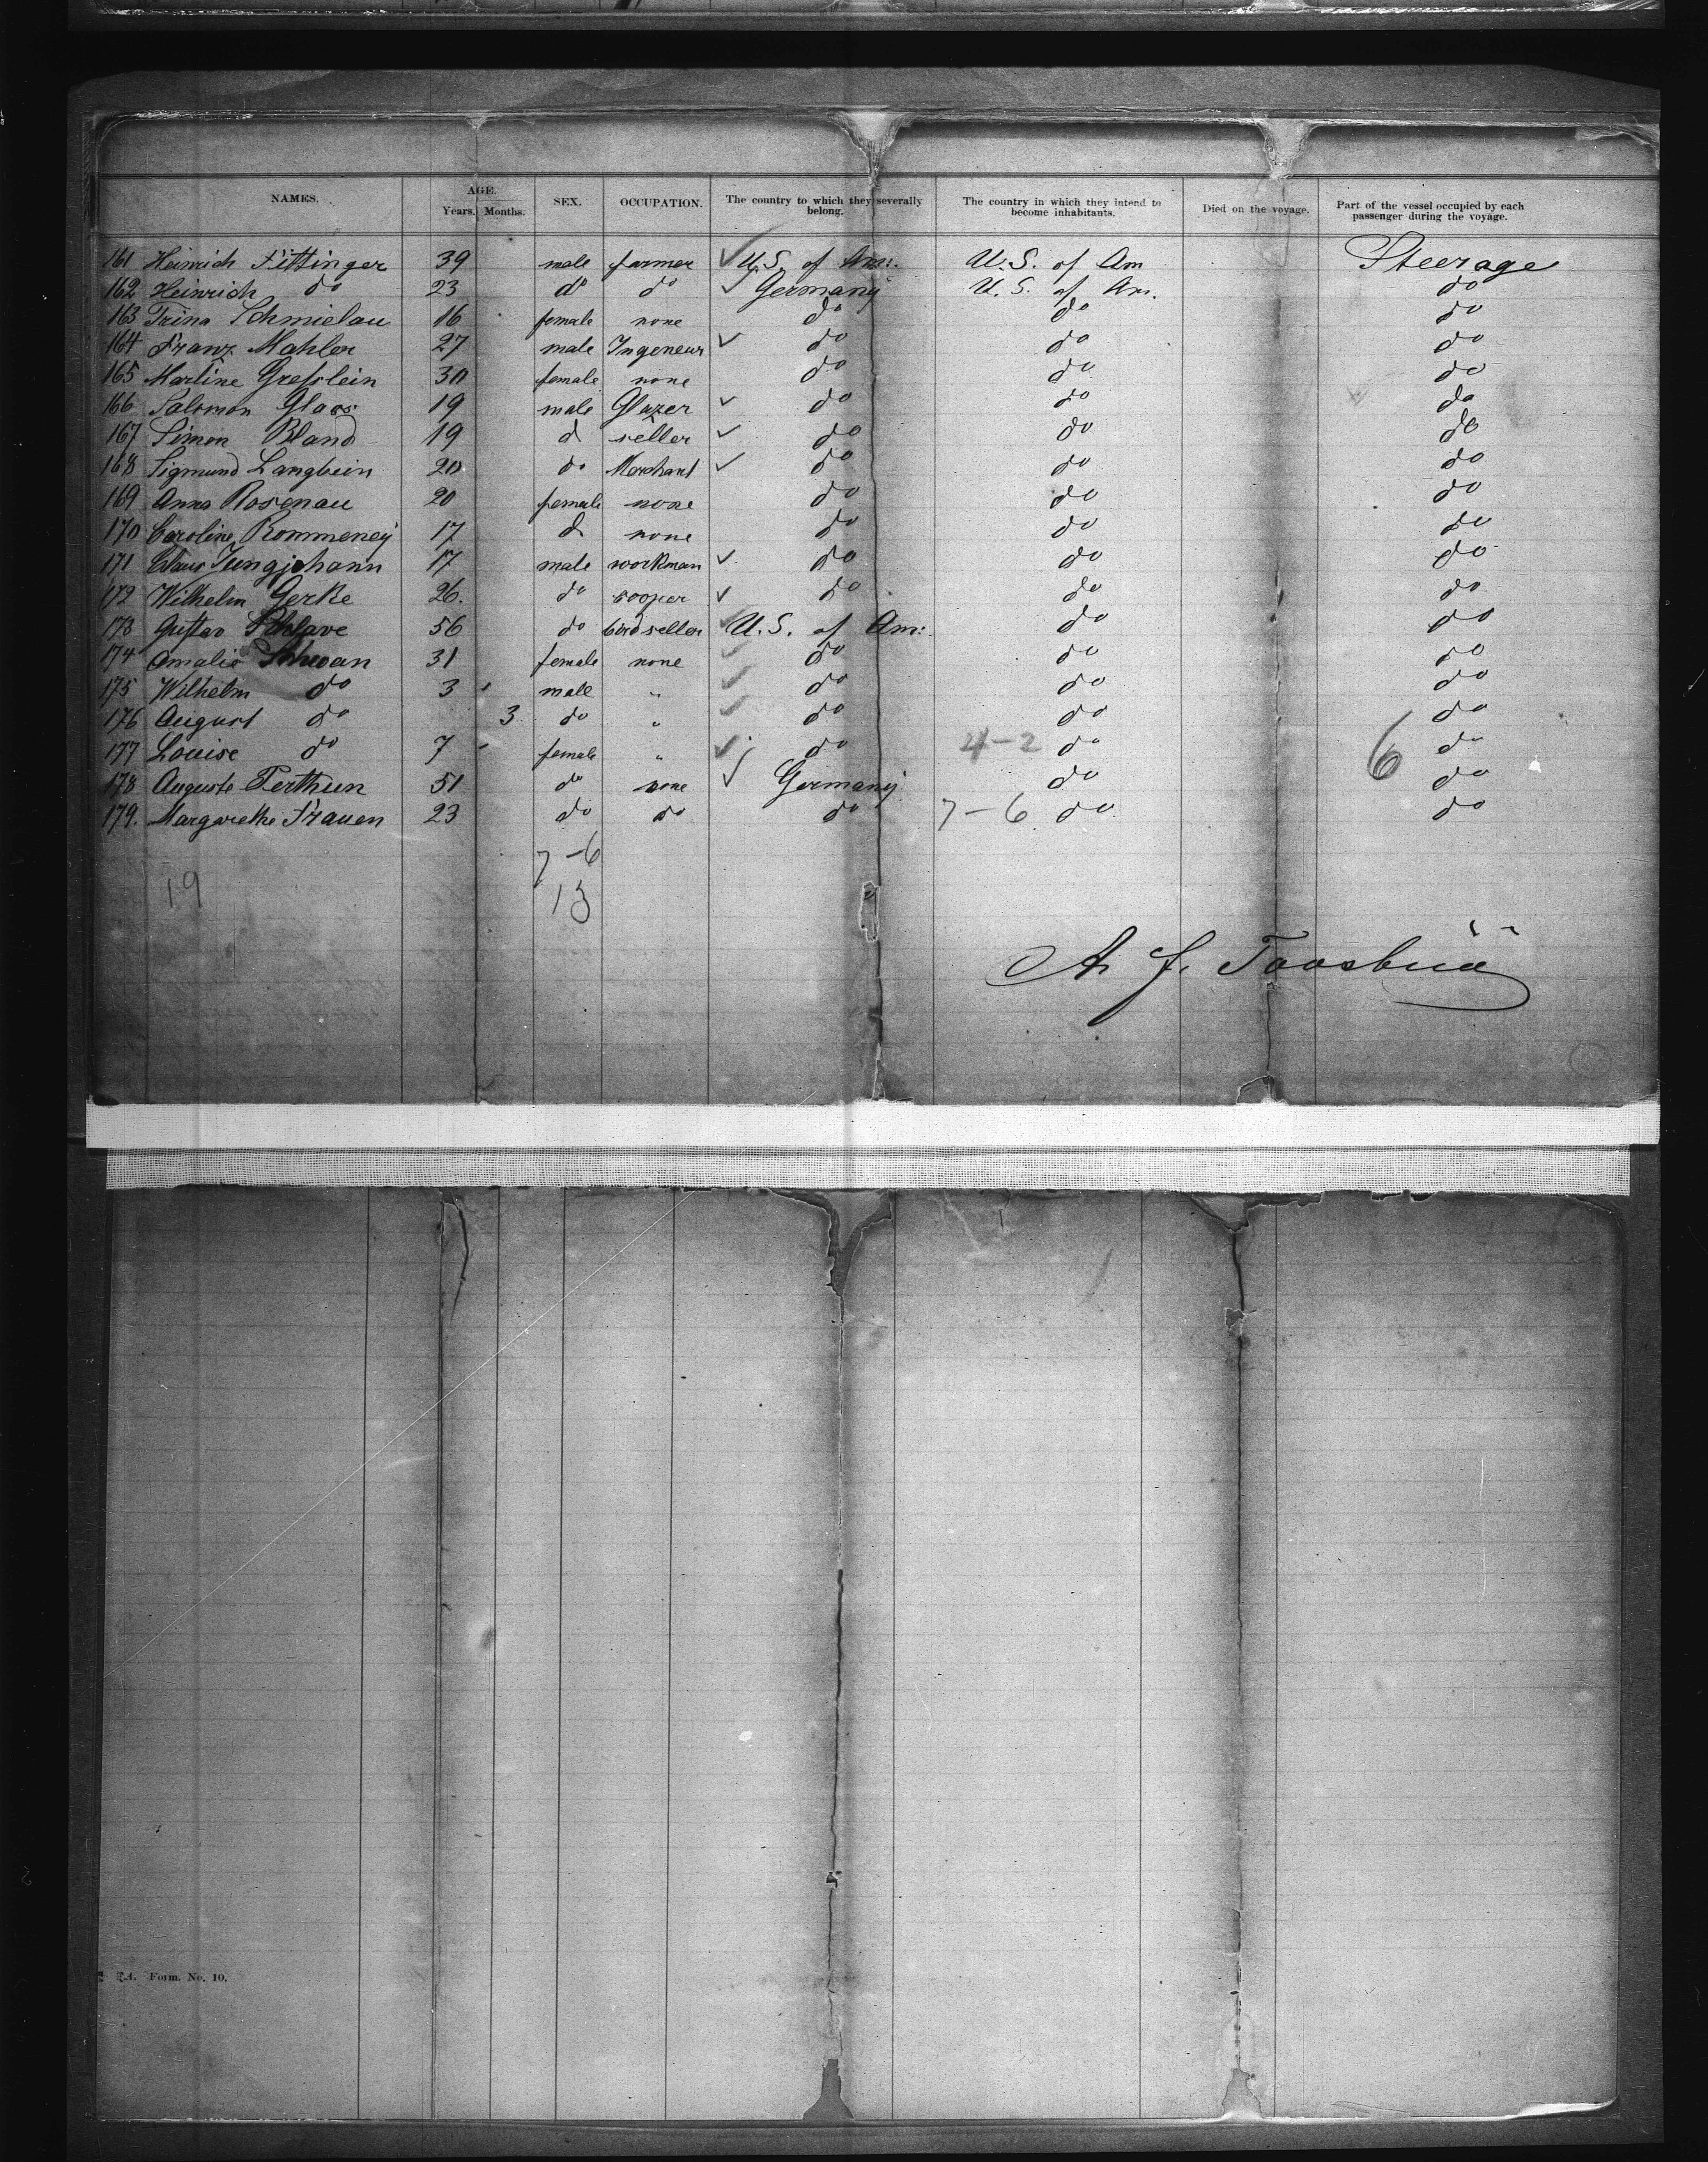 NAMES. AGE. Years. Months. SEX. OCCUPATION. The country to which they severally belong. The country in which they intend to become inhabitants. Died on the voyage. Part of the vessel occupied by each passenger during the voyage.
161 Heinrich Fittinger 39 male farmer U.S. of Am. U.S. of Am Steerage
162 Heinrich do 23 do do Germany U.S. of Am. do
163 Trina Schmielau 16 female none do do do
164 Franz Mahler 27 male Ingeneur do do do
165 Marline Gresslein 30 female none do do do
166 Salomon Glass 19 male Glazer do do do
167 Simon Bland 19 d seller do do do
168 Sigmund Langbein 20 do Merchant do do do
169 Anna Rosenau 20 female none do do do
170 Caroline Rommeney 17 d none do do do
171 Claus Jungjohann 17 male workman do do do
172 Wilhelm Gerke 26. do cooper do do do
173 Gustav Schlave 56 do birdseller U.S. of Am: do do
174 Amalie Schwan 31 female none do do do
175 Wilhelm do 3 male " do do do
176 August do 3 do " do do do
177 Louise do 7 female " do 4-2 do 6 do
178 Auguste Perthun 51 do none Germany do do
179. Margarethe Frauen 23 do do do 7-6 do do
7-6
19 13
A. J.
Form. No. 10.